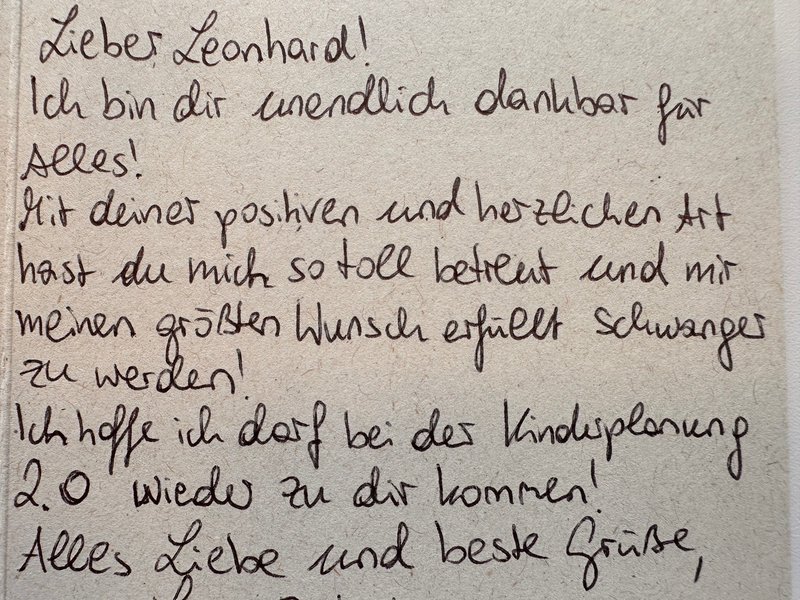 Lieber Leonhard!
Ich bin dir unendlich dankbar für
Alles!
Mit deiner positiven und herzlichen Art
hast du mich so toll betreut und mir
meinen größten Wunsch erfüllt schwanger
zu werden!
Ich hoffe ich darf bei der Kinderplanung
2.0 wieder zu dir kommen!
Alles Liebe und beste Grüße,